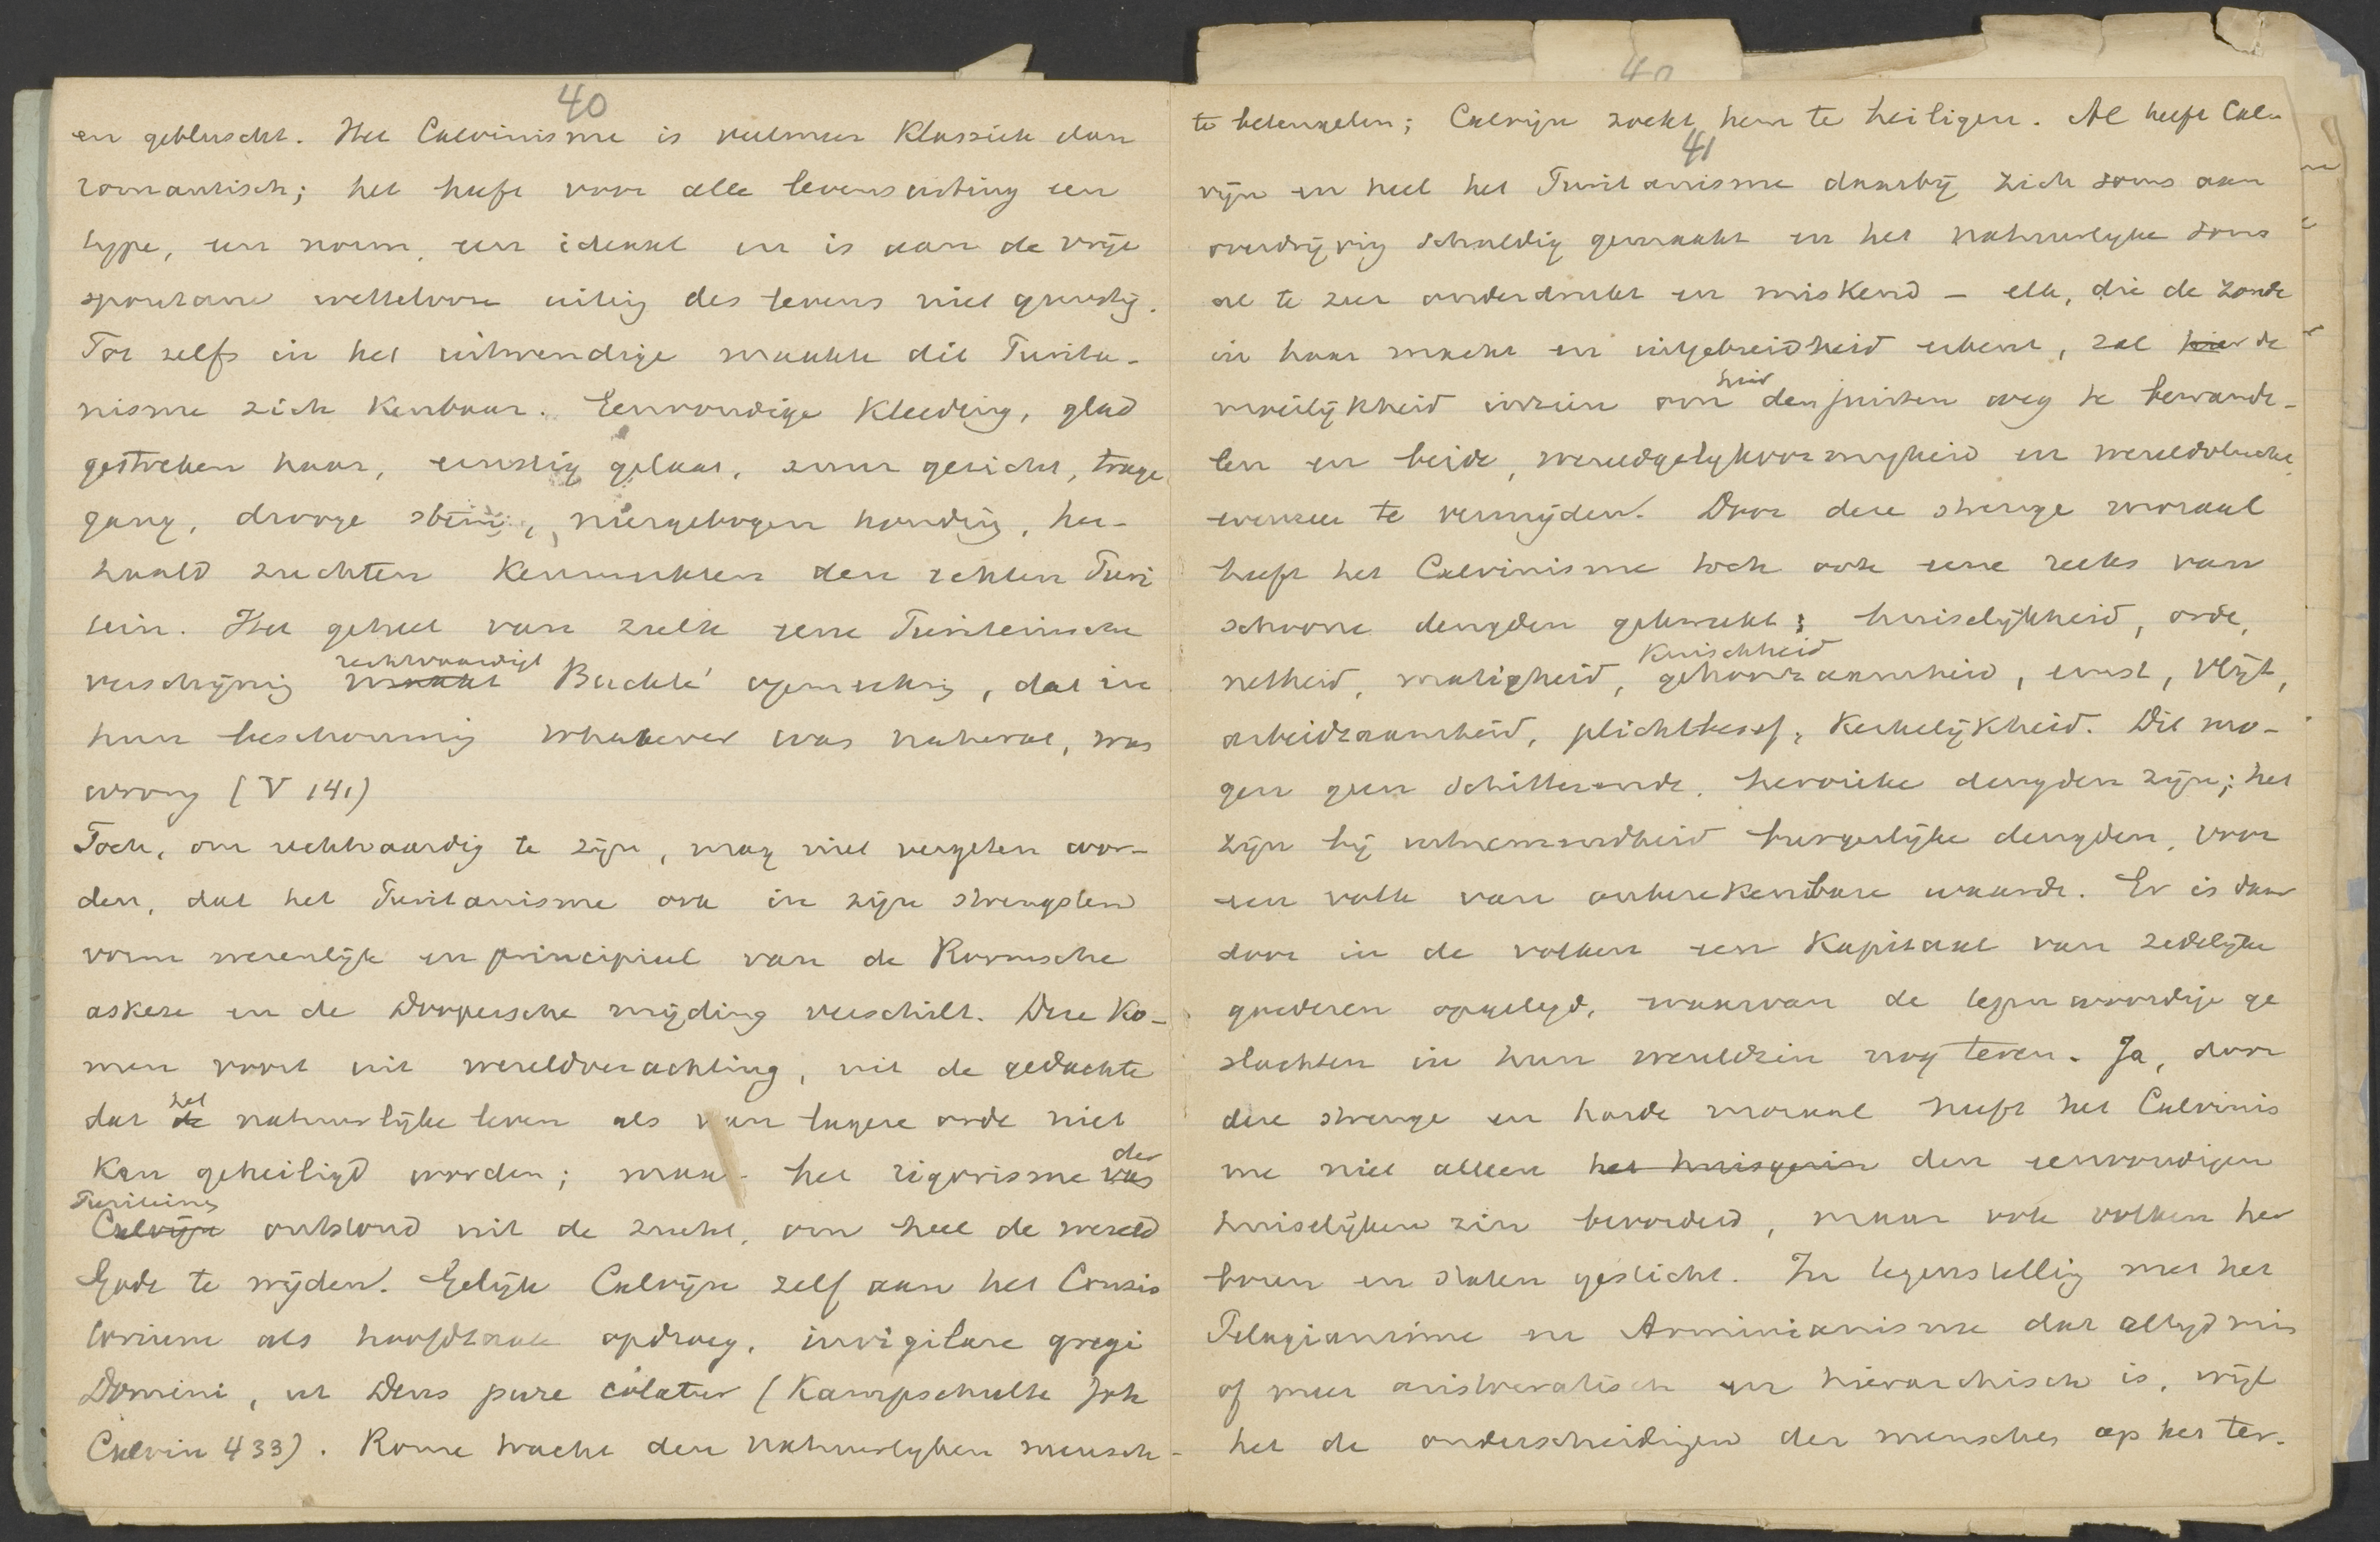 40
en gebluscht. Het Calvinisme is veelmeer klassiek dan
romantisch; het heeft voor alle levensuiting een
type, een norm, een ideaal en is aan de vrije
spontane wettelooze uiting des levens niet gunstig.
Tot zelfs in het uitwendige maakte dit Purita-
nisme zich kenbaar. Eenvoudige kleeding, glad
gestreken haar, ernstig gelaat, zuur gezicht, trage
gang, drooge stem, neergebogen houding, her-
haald zuchten kenmerkten den echten Puri
tein. Het geheel van zulk eene Puriteinsche
rechtvaardigt
verschijning maakt Buckle's opmerking, dat in
hun beschouwing whatever was natural, was
wrong (V 141)
Toch, om rechtvaardig te zijn, mag niet vergeten wor-
den, dat het Puritanisme ook in zijn strengsten
vorm wezenlijk en principieel van de Roomsche
askese en de Doopersche mijding verschilt. Deze ko-
men voort uit wereldverachting, uit de gedachte
het
dat de natuurlijke leven als van lagere orde niet
der
kan geheiligd worden; maar het rigorisme van
Puriteins
Calvijn ontstond uit de zucht, om heel de wereld
Gode te wijden. Gelijk Calvijn zelf aan het Consis
torium als hoofdtaak opdroeg, invigilare gregi
Domini, ut Deus pure colatur (Kampschulte Joh
Calvin 433). Rome tracht den natuurlyken mensch
40
te beteugelen; Calvijn zoekt hem te heiligen. Al heeft Cal-
41
vijn en heel het Puritanisme daarbij zich soms aan
overdrijving schuldig gemaakt en het natuurlyke soms
al te zeer onderdrukt en miskend – elk, die de zonde
in haar macht en uitgebreidheid erkent, zal hier de
hier
moeilijkheid inzien om den juisten weg te bewande-
len en beide, wereldgelykvormigheid en wereldvlucht
evenzeer te vermijden. Door deze strenge moraal
heeft het Calvinisme toch ook eene reeks van
schoone deugden gekweekt: huiselijkheid, orde,
kuischheid
netheid, matigheid, gehoorzaamheid, ernst, vlijt,
arbeidzaamheid, plichtbesef, kerkelijkheid. Dit mo-
gen geen schitterende, heroieke deugden zijn; het
zijn bij uitnemendheid burgerlijke deugden, voor
een volk van onberekenbare waarde. Er is daar
door in de volken een kapitaal van zedelijke
goederen opgelegd, waarvan de tegenwoordige ge
slachten in hun wereldzin nog teren. Ja, door
deze strenge en harde moraal heeft het Calvinis
me niet alleen het huisgezin den eenvoudigen
huiselijken zin bevorderd, maar ook volken her
boren en staten gesticht. In tegenstelling met het
Pelagianisme en Arminianisme dat altyd min
of meer aristocratisch en hierarchisch is, wijl
het de onderscheidingen der menschen op het ter-